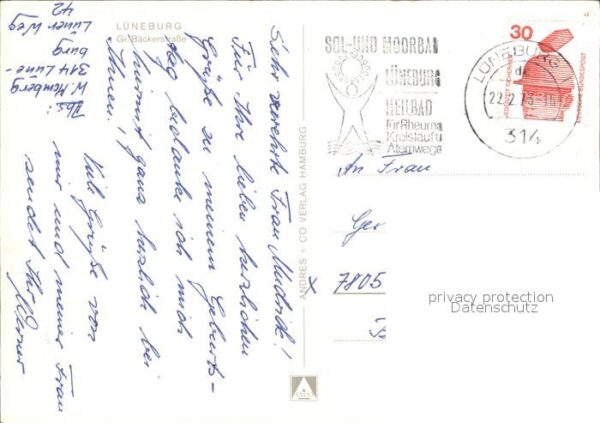 LÜNEBURG
Gr. Bäckerstraße
Abs:
W. Homberg
314 Lüne-
burg
Lüner Weg
42
Sehr verehrte Frau
Für Ihre lieben herzlichen
Grüße zu meinem Geburts-
tag bedanke ich mich
hiermit ganz herzlich bei
Ihnen!
Viele Grüße von
mir und meiner Frau
sendet Ihr
Werner
ANDRES + CO VERLAG HAMBURG
SOL- UND MOORBAD
LÜNEBURG
HEILBAD
für Rheuma
Kreislauf u
Atemwege
LÜNEBURG
de
22.2.73
314
30
DEUTSCHE BUNDESPOST
An Frau
Ger
7805
privacy protection
Datenschutz